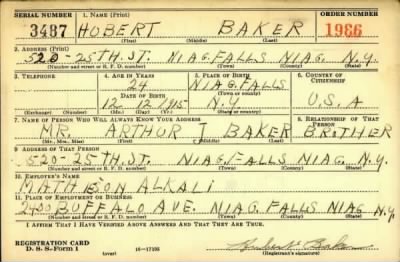 SERIAL NUMBER 1. NAME (Print) ORDER NUMBER
3487 HOBERT BAKER 1986
(First) (Middle) (Last)
2. ADDRESS (Print)
520-25TH.ST. NIAG.FALLS NIAG. N.Y.
(Number and street or R. F. D. number) (Town) (County) (State)
3. TELEPHONE 4. AGE IN YEARS 5. PLACE OF BIRTH 6. COUNTRY OF CITIZENSHIP
24 NIAG.FALLS
DATE OF BIRTH (Town or county)
12 12 1915 N.Y. U.S.A
(Exchange) (Number) (Mo.) (Day) (Yr.) (State or country)
7. NAME OF PERSON WHO WILL ALWAYS KNOW YOUR ADDRESS 8. RELATIONSHIP OF THAT PERSON
MR. ARTHUR T BAKER BROTHER
(Mr., Mrs., Miss) (First) (Middle) (Last)
9. ADDRESS OF THAT PERSON
520-25TH.ST. NIAG.FALLS NIAG. N.Y.
(Number and street or R. F. D. number) (Town) (County) (State)
10. EMPLOYER'S NAME
MATHIESON ALKALI
11. PLACE OF EMPLOYMENT OR BUSINESS
2400 BUFFALO AVE. NIAG. FALLS NIAG N.Y.
(Number and street or R. F. D. number) (Town) (County) (State)
I AFFIRM THAT I HAVE VERIFIED ABOVE ANSWERS AND THAT THEY ARE TRUE.
REGISTRATION CARD
D. S. S. Form 1 (over) Hobert Baker
(Registrant's signature)